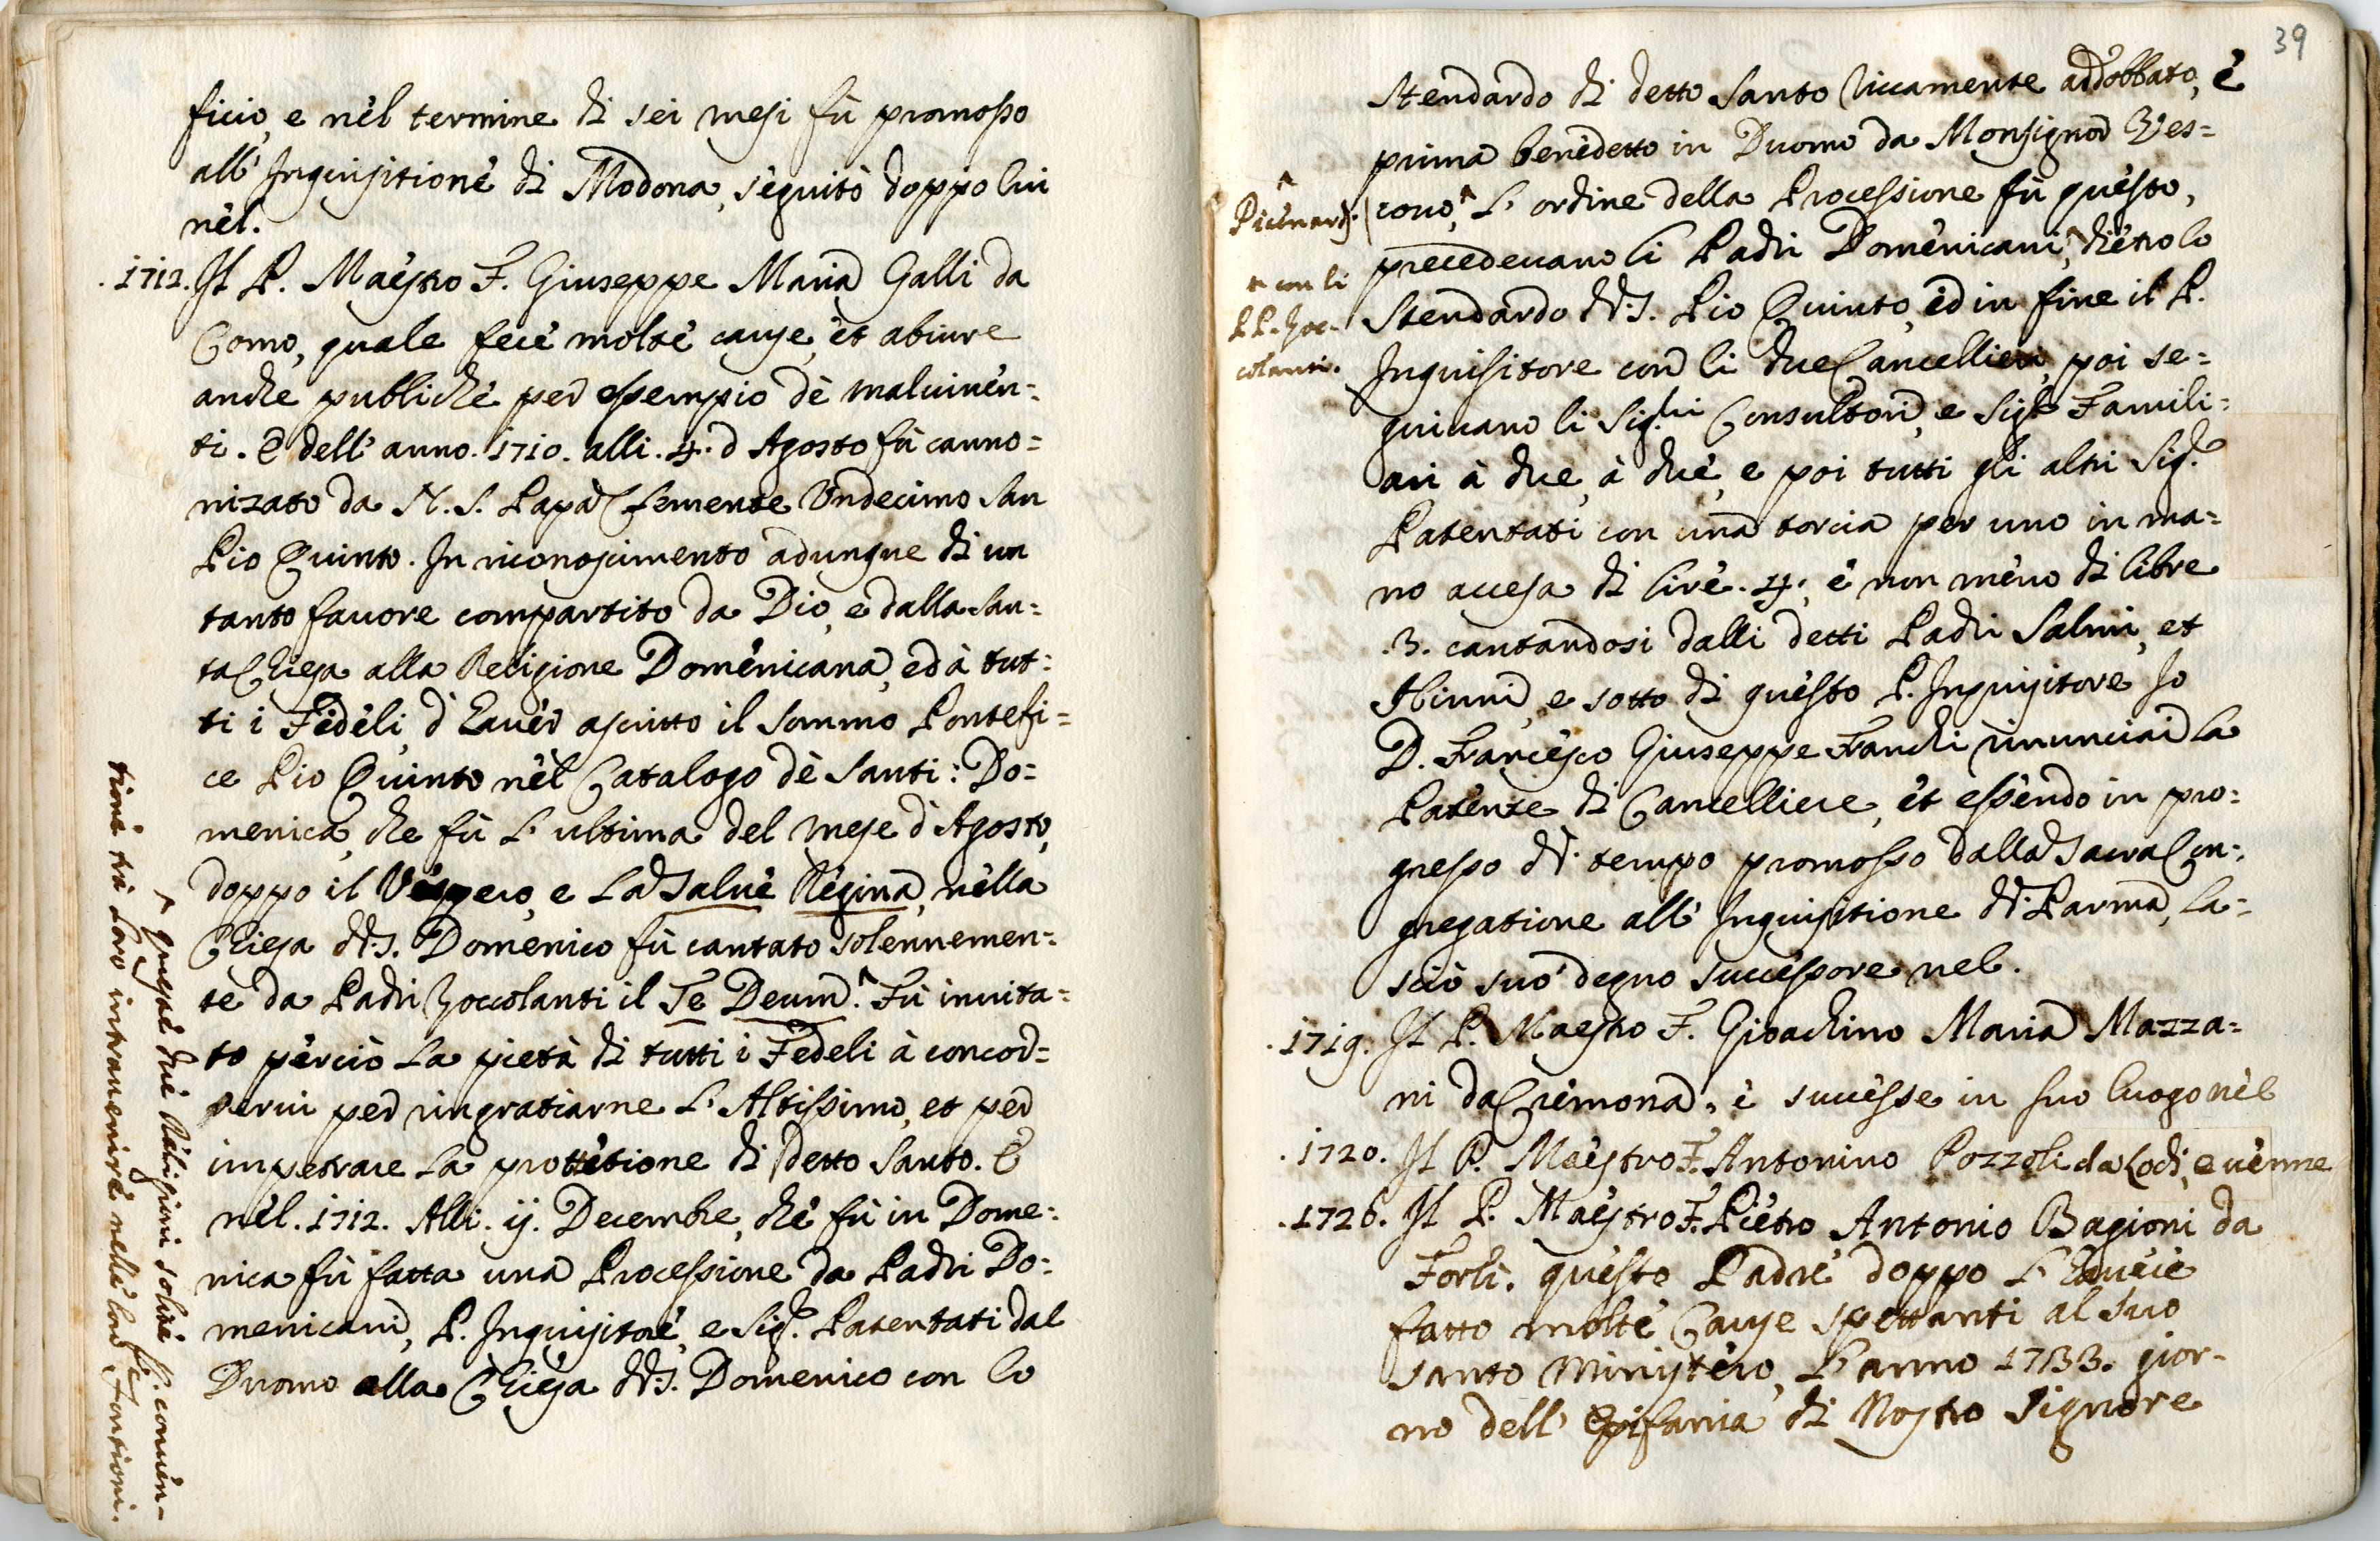 ficio, e nèl termine di sei mesi fù promosso
all' Inquisitionè di Modona, sèguitò doppo lui
nèl.
.1712. Il P. Maèstro F. Giuseppe Maria Galli da
Como, quale fecè moltè cause, èt abiure
anche publichè per essempio dè malviuèn=
ti. E dell' anno .1710. alli .4. d Agosto fù canno=
nizato da N. S. Papa Clemente Undecimo San
Pio Quinto. In riconoscimento adunque di un
tanto fauore compartito da Dio, e dalla San=
ta Chiesa alla Religione Domènicana, ed à tut=
ti i Fèdèli, d' hauèr ascritto il Sommo Pontefi=
ce Pio Quinto nèl Catalogo dè Santi: Do=
menica, che fù l' ultima del mese d' Agosto,
doppo il Vèspero, e la Saluè Règina, nèlla
Chiesa di S. Domenico fù cantato solennemen=
tè da Padri Zoccolanti il Te Deum.^ Fù inuita=
to pèrciò la pietà di tutti i Fedeli à concor=
rerui per ringratiarne l' Altissimo, et per
impetrare la protètione di detto Santo. E
nèl .1712. Alli .ij. Decembre, chè fù in Dome=
nica fù fatta una Processione da Padri Do=
menicani, P. Inquisitorè, e Sig.ri Patentati dal
Duomo alla Chièsa di S. Domenico con lo
^ quèste duè Rèligioni solitè P. conuèn=
tionè trà loro intrauenirè nellè loro Fontioni.
39
Stendardo di detto Santo riccamente addobbato, è
prima benèdetto in Duomo da Monsignor Ves=
couo,^ L' ordine della Processione fù quèsto,
^ Picènardi.
precedeuano li Padri Domènicani,^ diètro lo
^ con li
Stendardo di S. Pio Quinto, èd in fine il P.
PP. Zoc=
Inquisitore con li due Cancellieri, poi se=
colanti.
guiuano li Sig.ri Consultori, e Sig.ri Famili=
ari à due, à duè, e poi tutti gli altri Sig.ri
Patentati con una torcia per uno in ma=
no accesa di lirè .4. è non mèno di libre
.3. cantandosi dalli detti Padri Salmi, et
Hinni, e sotto di quèsto P. Inquisitore Io
D. Francèsco Giuseppe Franchi rinunciai la
Patènte di Cancelliere, èt essèndo in pro=
gresso di tempo promosso dalla Sacra Con=
gregatione all' Inquisitione di Parma, la=
sciò suo degno Successore nel.
.1719. Il P. Maestro F. Gioachino Maria Mazza=
ni da Crèmona, è succèsse in suo luogo nèl
.1720. Il P. Maèstro F. Antonino Pozzoli da Lodi, e uènne
.1726. Il P. Maèstro F. Piètro Antonio Bagioni da
Forlì. quèsto Padrè doppo l' hauèrè
fatto moltè Cause spettanti al suo
santo Ministèro, L' anno 1733. gior=
no dell' Epifania di Nostro Signore